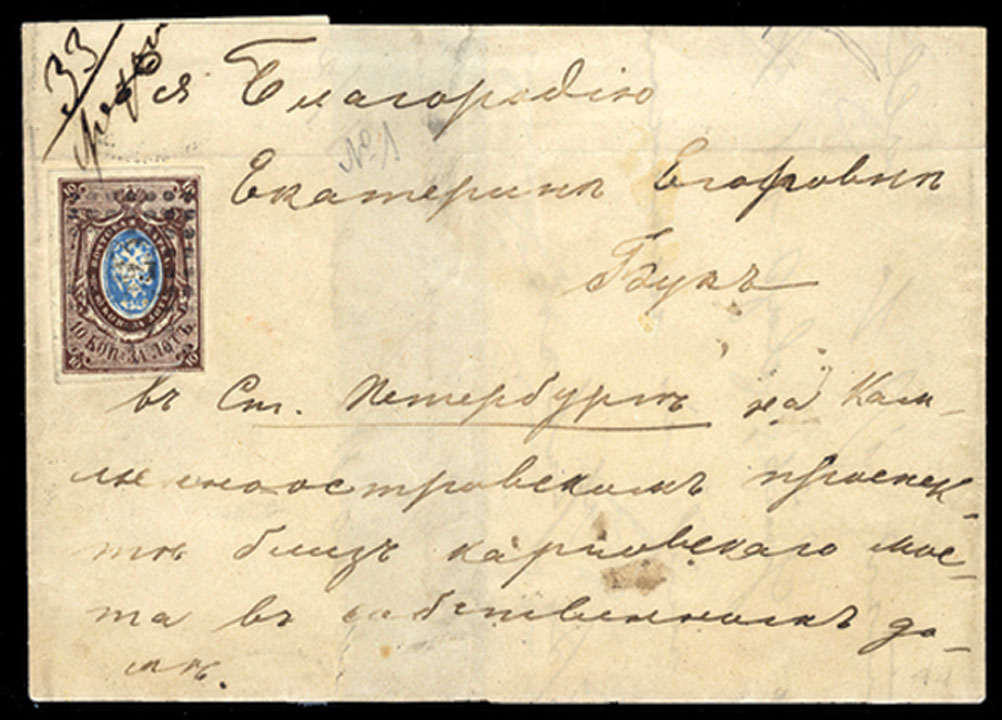 33
Ея Благородію
№1
Екатеринѣ Егоровнѣ
Гукъ
10 КОП. ЗА ЛОТЪ.
въ Ст. Петербургѣ на Кам-
менноостровскомъ проспек-
тѣ близъ карповскаго мос-
та въ собственномъ до-
мѣ.